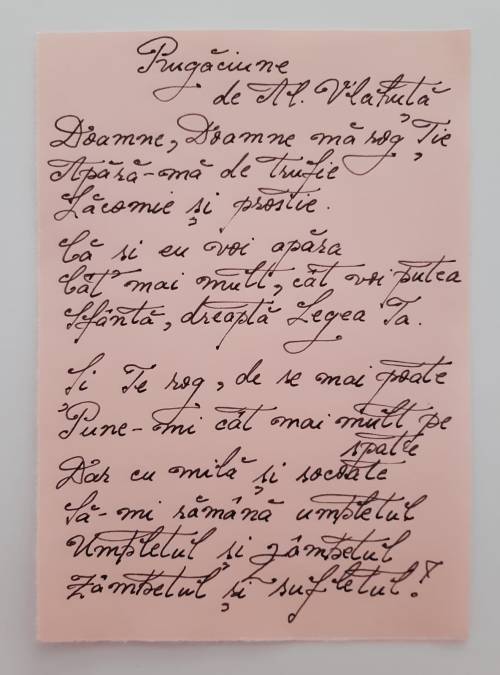 Rugăciune
de Al. Vlahuță
Doamne, Doamne mă rog Ție
Apără-mă de trufie
Lăcomie și prostie.
Că si eu voi apăra
Cât mai mult, cât voi putea
Sfântă, dreaptă Legea Ta.
Și Te rog, de se mai poate
Pune-mi cât mai mult pe
spate
Dar cu milă și socoate
Să-mi rămână umbletul
Umbletul și zâmbetul
Zâmbetul și sufletul!